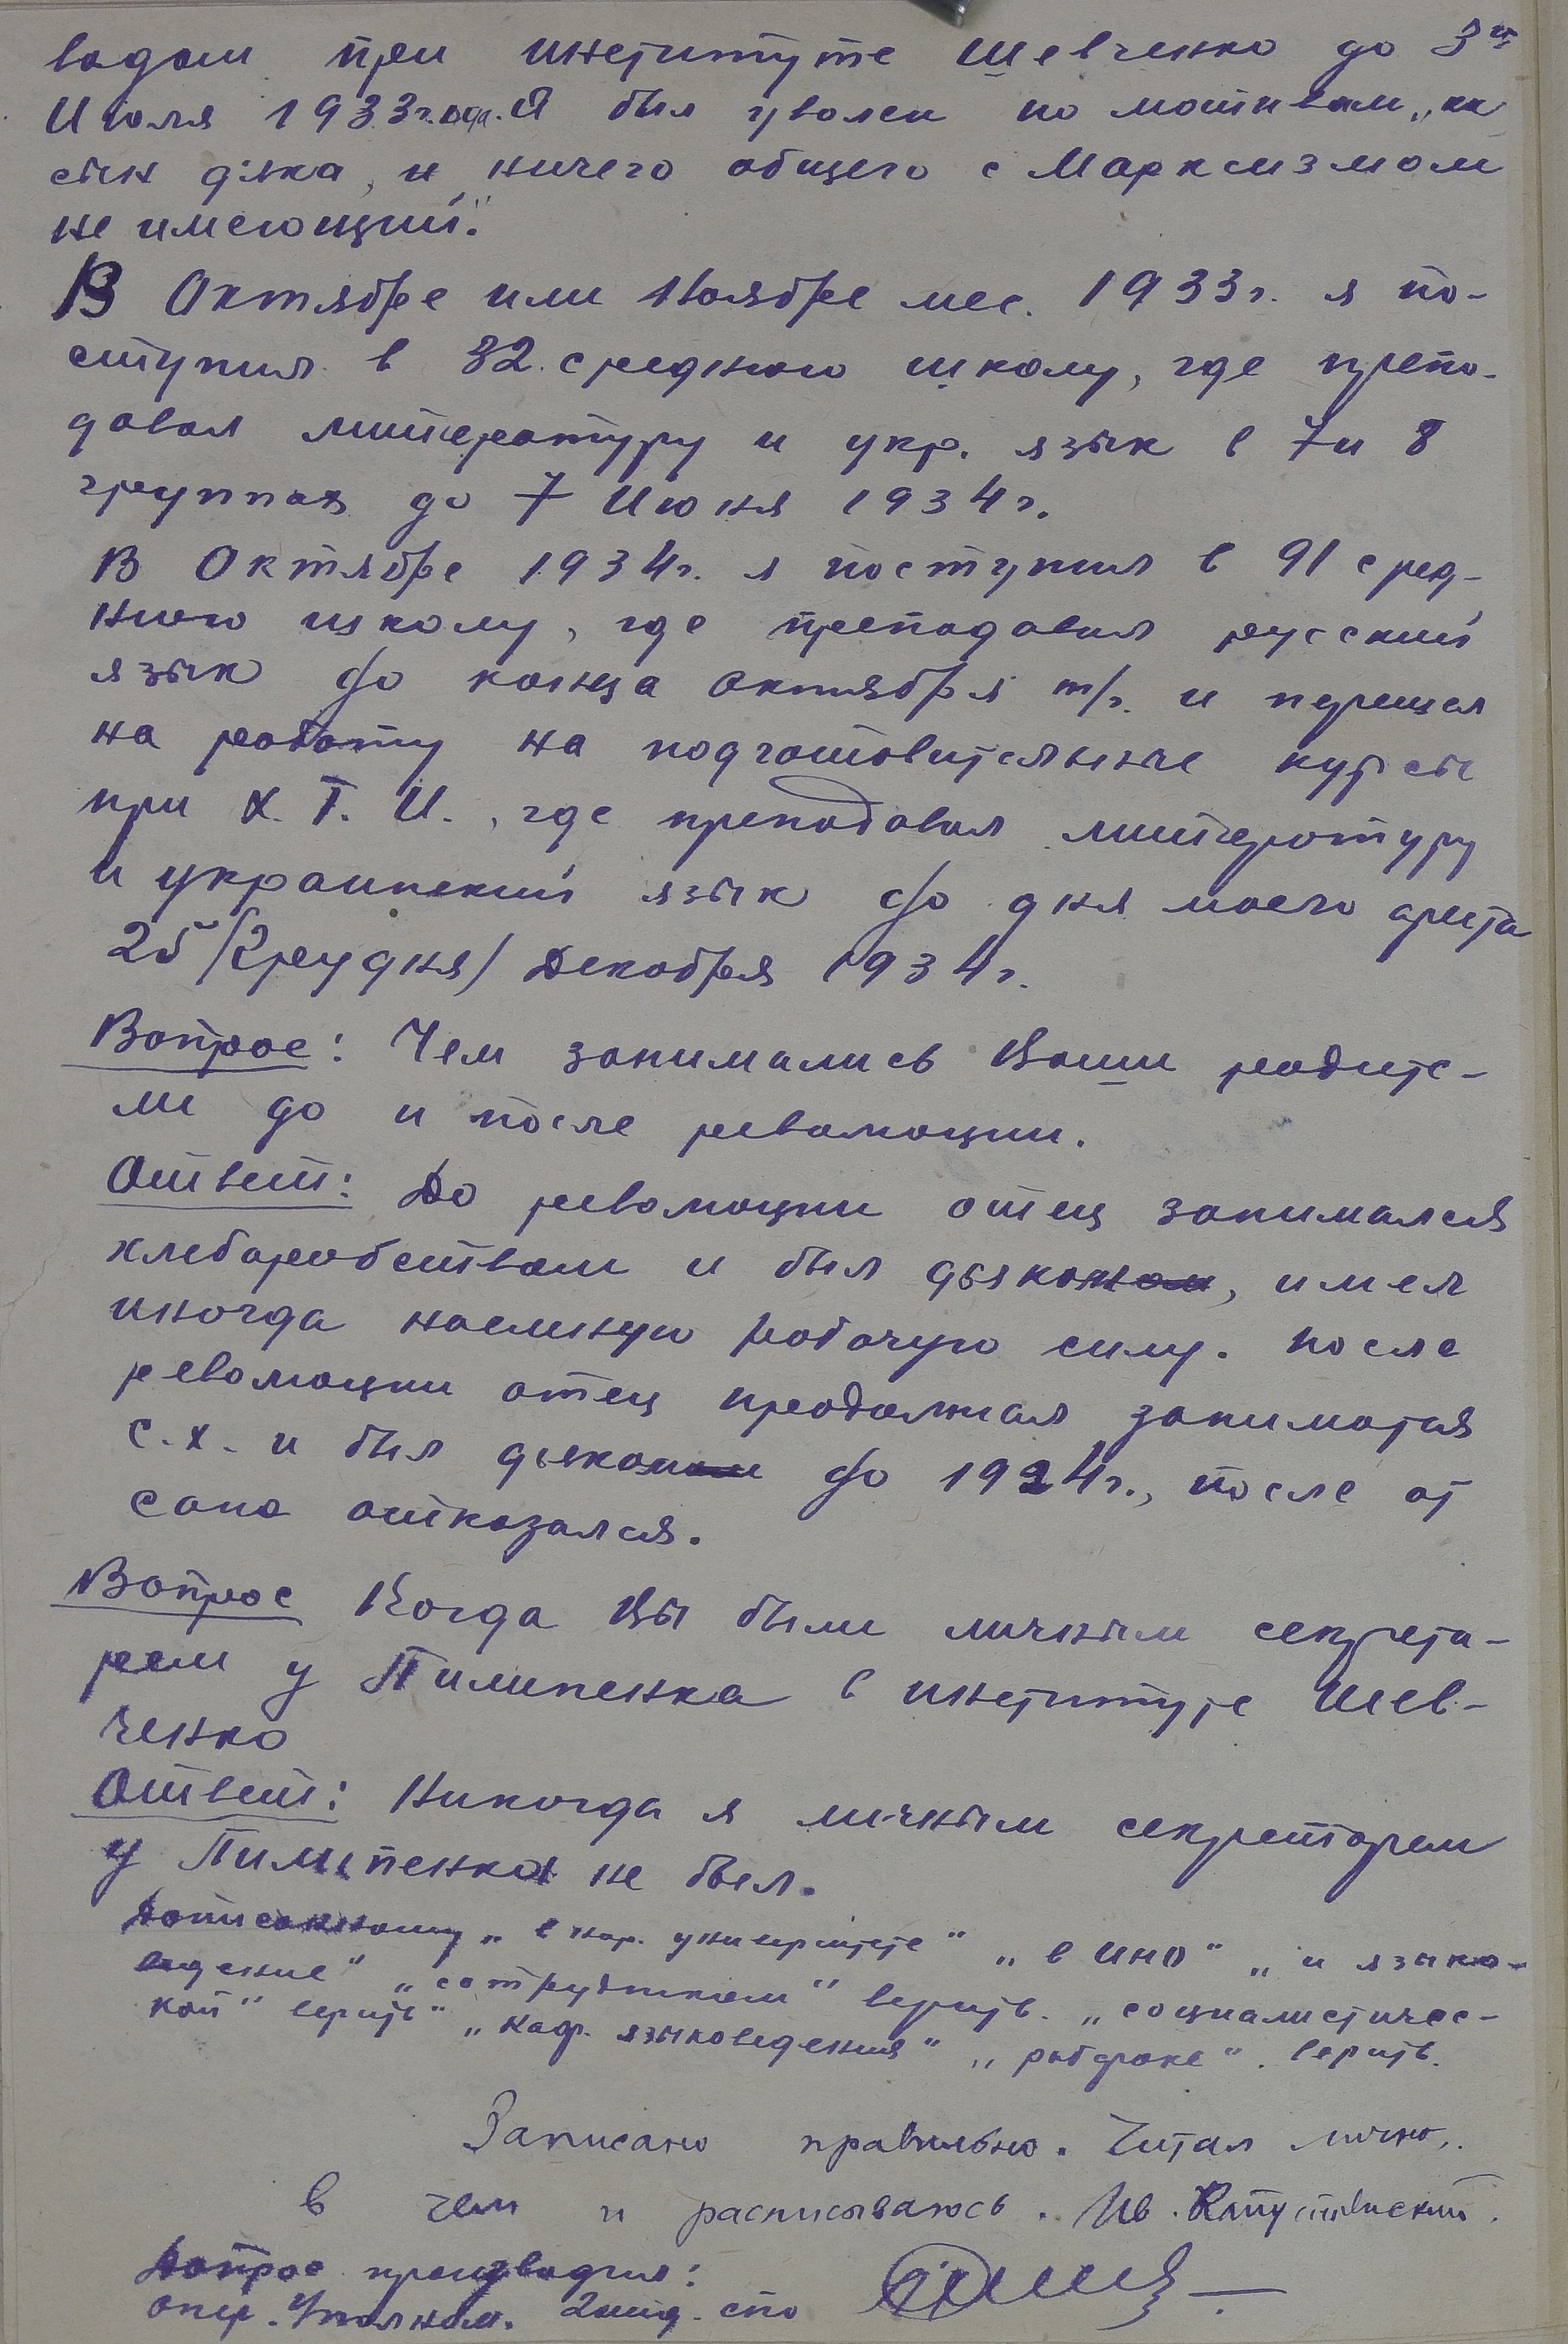 водом при институте Шевченко до 3го
Июля 1933 года. Я был уволен по мотивам „как
сын дяка, и ничего общего с Марксизмом
не имеющий".
В Октябре или Ноябре мес. 1933г. я по-
ступил в 32 среднюю школу, где препо-
давал литературу и укр. язык в 7 и 8
группах до 7 Июня 1934г.
В Октябре 1934г. я поступил в 91 сред-
нюю школу, где преподавал русский
язык до конца октября т/г. и перешел
на работу на подготовительные курсы
при Х.Т.И., где преподавал литературу
и украинский язык до дня моего ареста
25 /Грудня/ Декабря 1934г.
Вопрос: Чем занимались Ваши родите-
ли до и после революции.
Ответ: До революции отец занимался
хлеборобством и был дьяком, имел
иногда наемную рабочую силу. После
революции отец продолжал заниматся
с.х. и был дьяком до 1924г., после от
сана отказался.
Вопрос Когда Вы были личным секрета-
рем у Пилипенка в институте Шев-
ченко
Ответ: Никогда я личным секретарем
у Пилипенка не был.
Дописанному „в хар. университете" „в ИНО" „и языко-
ведение" „сотрудником" верить. „социалистичес-
кой" верить" „каф. языковедения" „рабфаке". верить.
Записано правильно. Читал лично,
в чем и расписываюсь. Ив. Капустянский.
Допрос производил:
опер. Уполном. 2 отд. спо